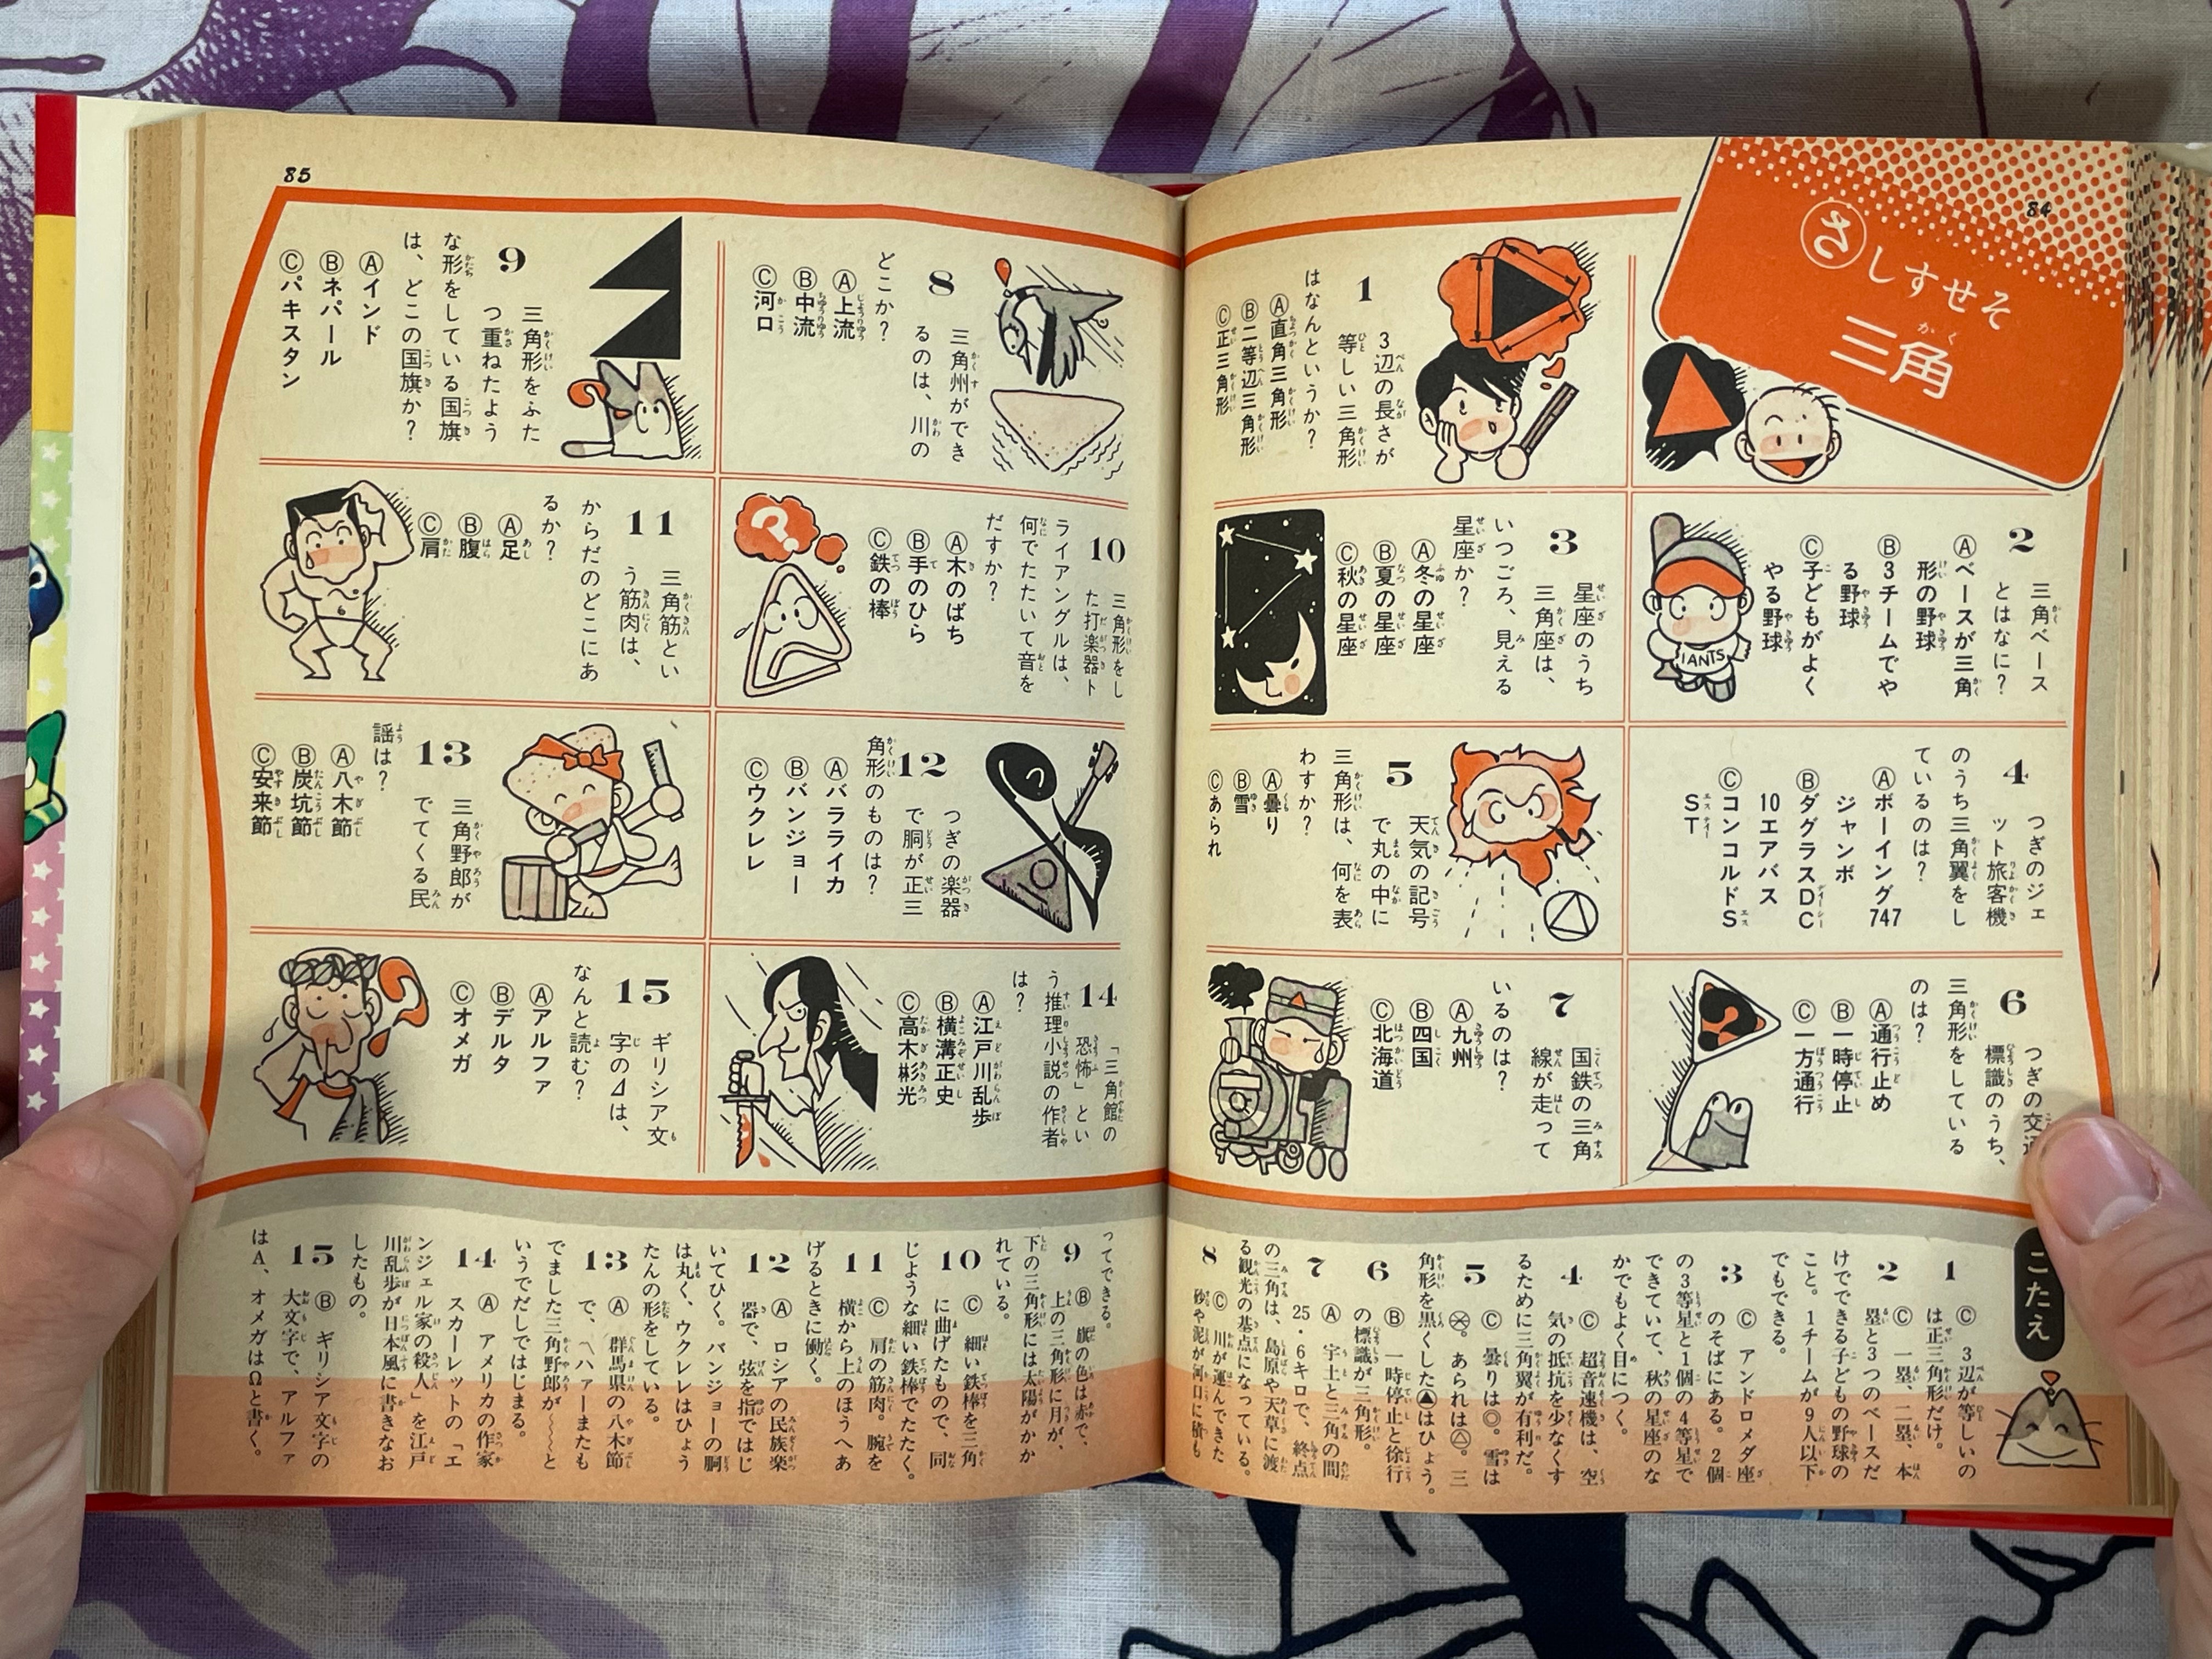 84
さしすせそ
三角
1
3辺の長さが
等しい三角形
はなんというか?
Ⓐ直角三角形
Ⓑ二等辺三角形
Ⓒ正三角形
2
三角ベース
とはなに?
Ⓐベースが三角
形の野球
Ⓑ3チームでや
る野球
Ⓒ子どもがよく
やる野球
IANTS
3
星座のうち
三角座は、
いつごろ、見える
星座か?
Ⓐ冬の星座
Ⓑ夏の星座
Ⓒ秋の星座
4
つぎのジェ
ット旅客機
のうち三角翼をし
ているのは?
Ⓐボーイング747
ジャンボ
ⒷダグラスDC
10エアバス
ⒸコンコルドS
ST
5
天気の記号
で丸の中に
三角形は、何を表
わすか?
Ⓐ曇り
Ⓑ雪
Ⓒあられ
6
つぎの交通
標識のうち、
三角形をしている
のは?
Ⓐ通行止め
Ⓑ一時停止
Ⓒ一方通行
7
国鉄の三角
線が走って
いるのは?
Ⓐ九州
Ⓑ四国
Ⓒ北海道
こたえ
1
Ⓒ 3辺が等しいの
は正三角形だけ。
2
Ⓒ 一塁、二塁、本
塁と3つのベースだ
けでできる子どもの野球の
こと。1チームが9人以下
でもできる。
3
Ⓒ アンドロメダ座
のそばにある。2個
の3等星と1個の4等星で
できていて、秋の星座のな
かでもよく目につく。
4
Ⓒ 超音速機は、空
気の抵抗を少なくす
るために三角翼が有利だ。
5
Ⓒ 曇りは◎。雪は
⊗。あられは△。三
角形を黒くした▲はひょう。
6
Ⓑ 一時停止と徐行
の標識が三角形。
7
Ⓐ 宇土と三角の間
25・6キロで、終点
の三角は、島原や天草に渡
る観光の基点になっている。
8
Ⓒ 川が運んできた
砂や泥が河口に積も
85
8
三角州ができ
るのは、川の
どこか?
Ⓐ上流
Ⓑ中流
Ⓒ河口
9
三角形をふた
つ重ねたよう
な形をしている国旗
は、どこの国旗か?
Ⓐインド
Ⓑネパール
Ⓒパキスタン
10
三角形をし
た打楽器ト
ライアングルは、
何でたたいて音を
だすか?
Ⓐ木のばち
Ⓑ手のひら
Ⓒ鉄の棒
11
三角筋とい
う筋肉は、
からだのどこにあ
るか?
Ⓐ足
Ⓑ腹
Ⓒ肩
12
つぎの楽器
で胴が正三
角形のものは?
Ⓐバラライカ
Ⓑバンジョー
Ⓒウクレレ
13
三角野郎が
でてくる民
謡は?
Ⓐ八木節
Ⓑ炭坑節
Ⓒ安来節
14
「三角館の
恐怖」とい
う推理小説の作者
は?
Ⓐ江戸川乱歩
Ⓑ横溝正史
Ⓒ高木彬光
15
ギリシア文
字のΔは、
なんと読む?
Ⓐアルファ
Ⓑデルタ
Ⓒオメガ
ってできる。
9
Ⓑ 旗の色は赤で、
上の三角形に月が、
下の三角形には太陽がかか
れている。
10
Ⓒ 細い鉄棒を三角
に曲げたもので、同
じような細い鉄棒でたたく。
11
Ⓒ 肩の筋肉。腕を
横から上のほうへあ
げるときに働く。
12
Ⓐ ロシアの民族楽
器で、弦を指ではじ
いてひく。バンジョーの胴
は丸く、ウクレレはひょう
たんの形をしている。
13
Ⓐ 群馬県の八木節
で、〽ハァーまたも
でました三角野郎が〜〜〜と
いうでだしではじまる。
14
Ⓐ アメリカの作家
スカーレットの「エ
ンジェル家の殺人」を江戸
川乱歩が日本風に書きなお
したもの。
15
Ⓑ ギリシア文字の
大文字で、アルファ
はA、オメガはΩと書く。